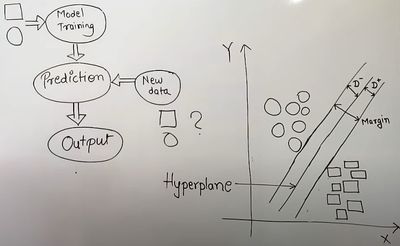 Model
Training
Prediction
New
data
?
Output
Y
D-
D+
Margin
Hyperplane
X